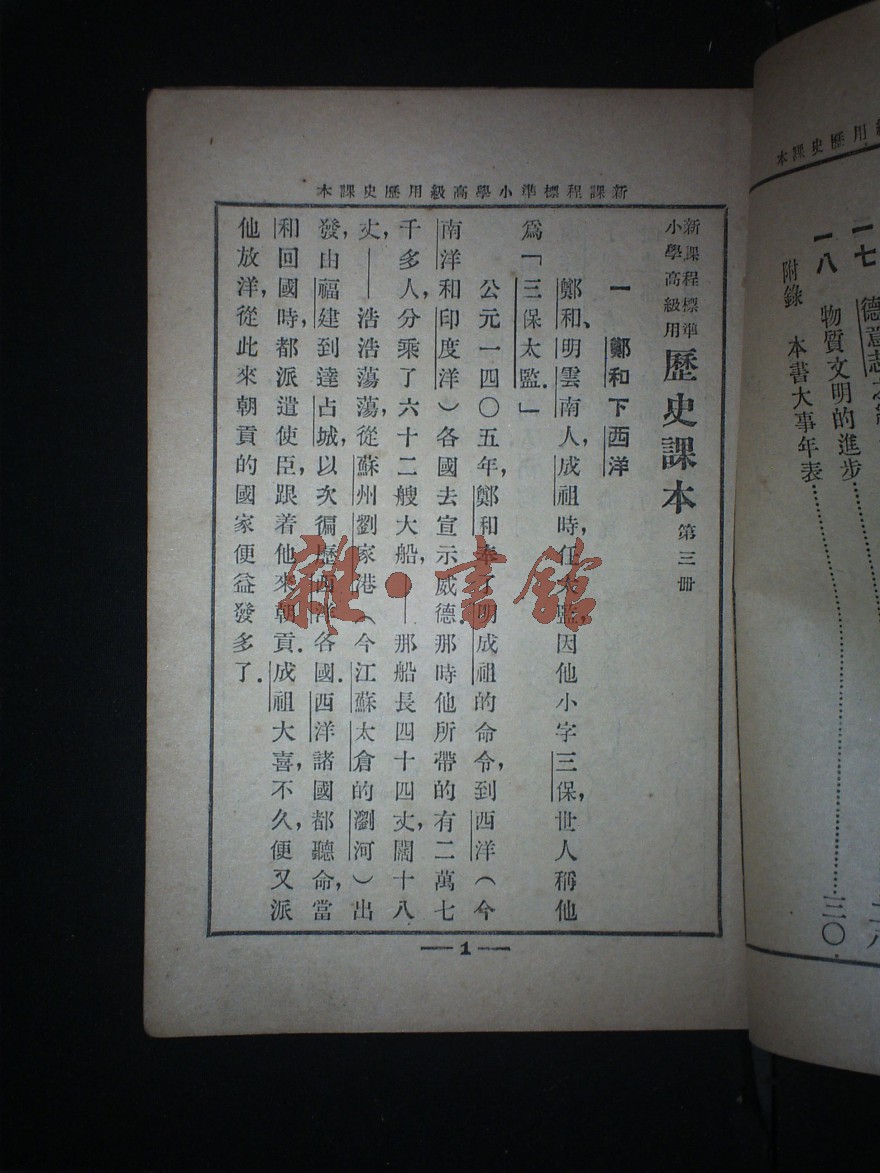 新課程標準小學高級用歷史課本
新課程標準
小學高級用
歷史課本 第三冊
一 鄭和下西洋
鄭和、明雲南人，成祖時，任太監，因他小字三保，世人稱他
爲「三保太監．」
公元一四〇五年，鄭和奉了明成祖的命令，到西洋（今
南洋和印度洋）各國去宣示威德．那時他所帶的有二萬七
千多人，分乘了六十二艘大船，——那船長四十四丈，闊十八
丈，——浩浩蕩蕩，從蘇州劉家港（今江蘇太倉的瀏河）出
發，由福建到達占城，以次徧歷西洋各國．西洋諸國都聽命，當
和回國時，都派遣使臣，跟着他來朝貢．成祖大喜，不久，便又派
他放洋，從此來朝貢的國家便益發多了．
— 1 —
用歷史課本
一七 德意志
二八
一八 物質文明的進步……三〇
附錄 本書大事年表……
雜·書館